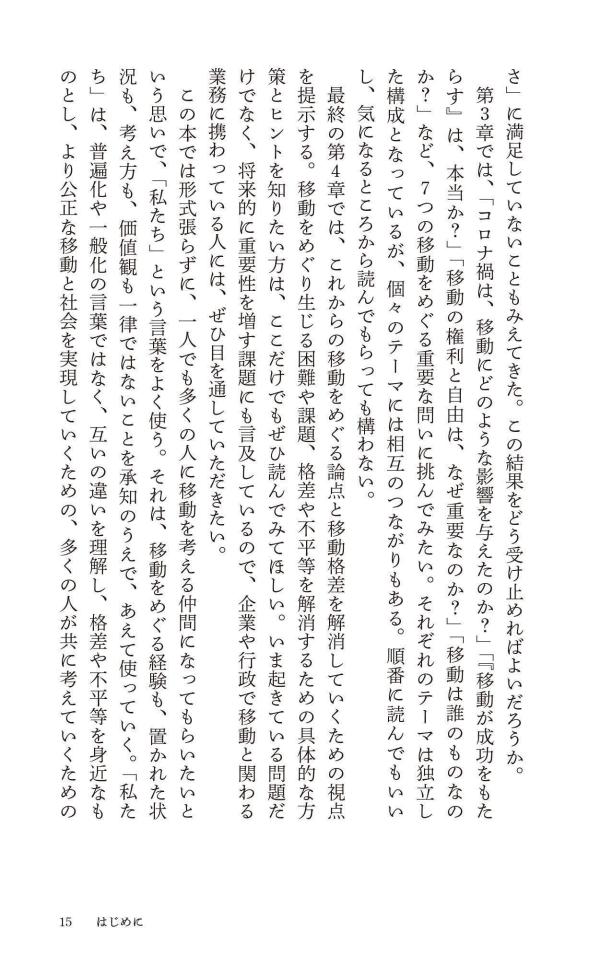 さ」に満足していないこともみえてきた。この結果をどう受け止めればよいだろうか。
　第3章では、「コロナ禍は、移動にどのような影響を与えたのか？」「『移動が成功をもた
らす』は、本当か？」「移動の権利と自由は、なぜ重要なのか？」「移動は誰のものなの
か？」など、7つの移動をめぐる重要な問いに挑んでみたい。それぞれのテーマは独立し
た構成となっているが、個々のテーマには相互のつながりもある。順番に読んでもいい
し、気になるところから読んでもらっても構わない。
　最終の第4章では、これからの移動をめぐる論点と移動格差を解消していくための視点
を提示する。移動をめぐり生じる困難や課題、格差や不平等を解消するための具体的な方
策とヒントを知りたい方は、ここだけでもぜひ読んでみてほしい。いま起きている問題だ
けでなく、将来的に重要性を増す課題にも言及しているので、企業や行政で移動と関わる
業務に携わっている人には、ぜひ目を通していただきたい。
　この本では形式張らずに、一人でも多くの人に移動を考える仲間になってもらいたいと
いう思いで、「私たち」という言葉をよく使う。それは、移動をめぐる経験も、置かれた状
況も、考え方も、価値観も一律ではないことを承知のうえで、あえて使っていく。「私た
ち」は、普遍化や一般化の言葉ではなく、互いの違いを理解し、格差や不平等を身近なも
のとし、より公正な移動と社会を実現していくための、多くの人が共に考えていくための
15　はじめに